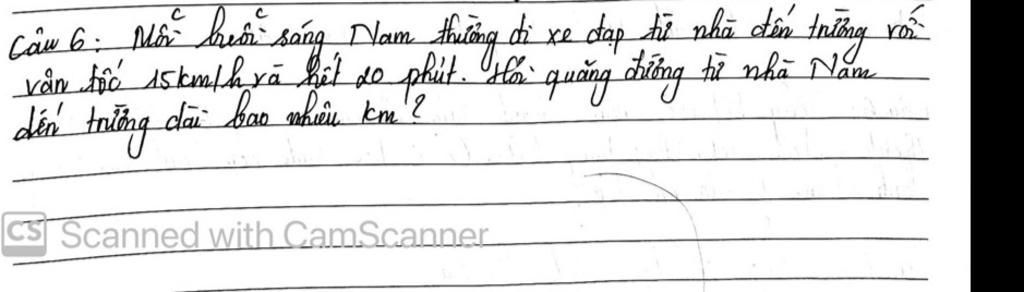 Câu 6: Mỗi buổi sáng Nam thường đi xe đạp từ nhà đến trường với
vận tốc 15 km/h và hết 20 phút. Hỏi quãng đường từ nhà Nam
đến trường dài bao nhiêu km?
CS Scanned with CamScanner